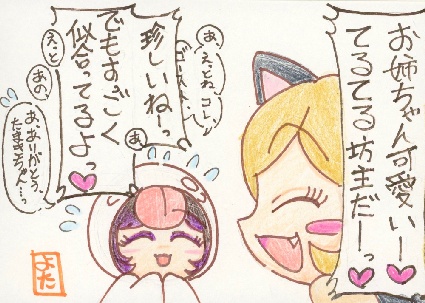 お姉ちゃん可愛いー
てるてる坊主だーっ
あ、えとね、コレ、
珍しいねーっ
でもすごく
似合ってるよっ
あ
えっと
あの
あ、ありがとう、
たまきちゃん…っ
よた